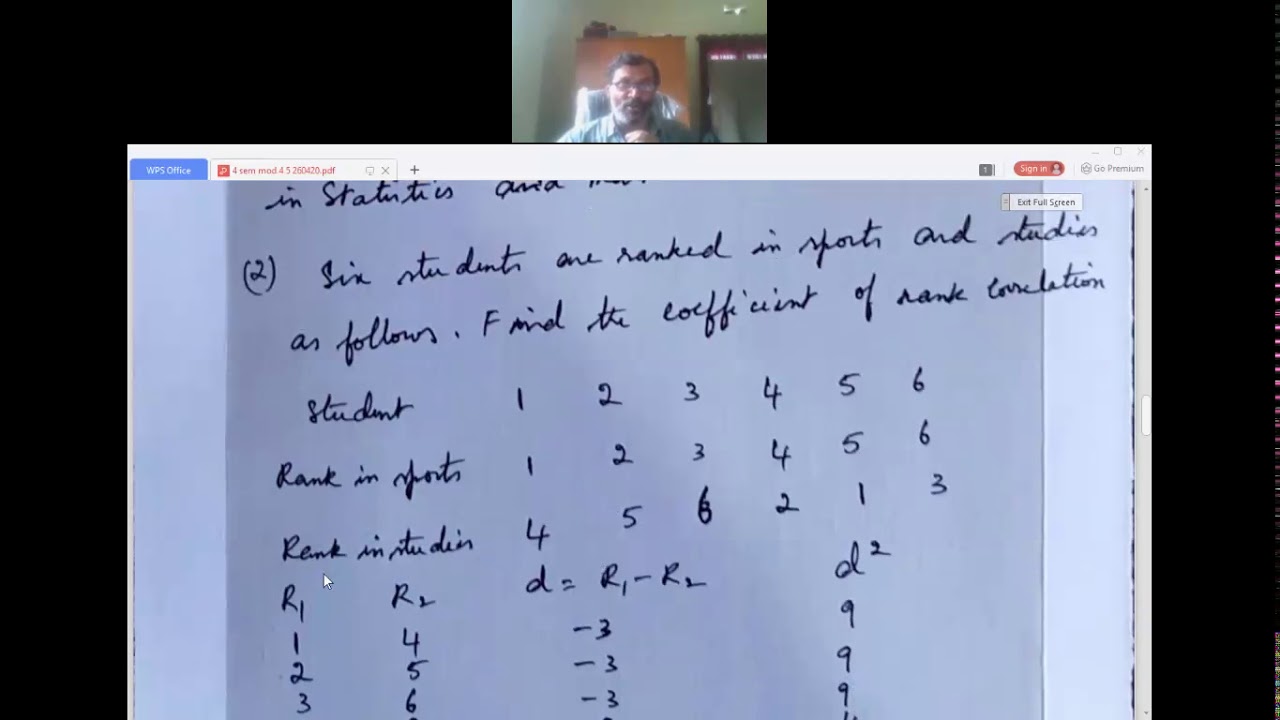 WPS Office
4 sem mod 4 5 260420.pdf
1
Sign in
Go Premium
Exit Full Screen
in Statistics and
(2) Six students are ranked in sports and studies
as follows. Find the coefficient of rank correlation
Student 1 2 3 4 5 6
Rank in sports 1 2 3 4 5 6
Rank in studies 4 5 6 2 1 3
R1 R2 d = R1 - R2 d2
1 4 -3 9
2 5 -3 9
3 6 -3 9